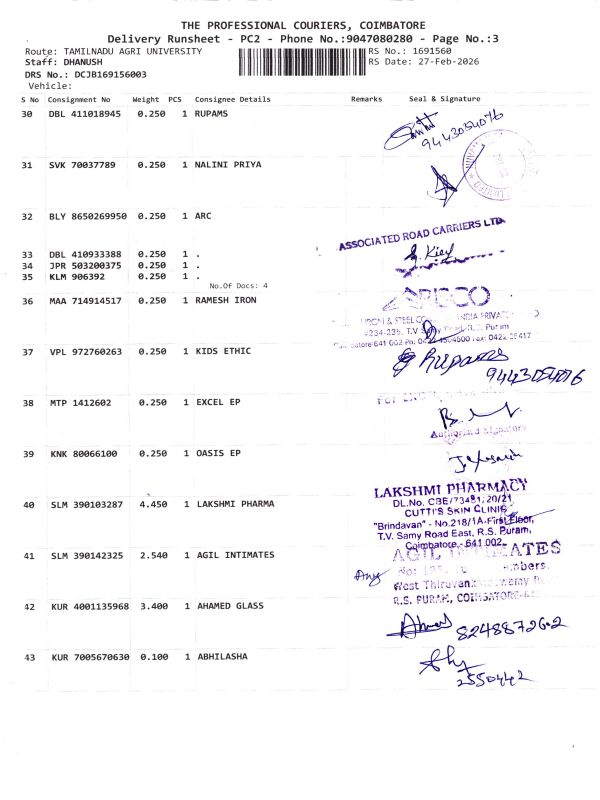 THE PROFESSIONAL COURIERS, COIMBATORE
Delivery Runsheet - PC2 - Phone No.:9047080280 - Page No.:3
Route: TAMILNADU AGRI UNIVERSITY
RS No.: 1691560
Staff: DHANUSH
RS Date: 27-Feb-2026
DRS No.: DCJB169156003
Vehicle:
S No Consignment No Weight PCS Consignee Details Remarks Seal & Signature
30 DBL 411018945 0.250 1 RUPAMS
9443054076
31 SVK 70037789 0.250 1 NALINI PRIYA
32 BLY 8650269950 0.250 1 ARC
ASSOCIATED ROAD CARRIERS LTD
33 DBL 410933388 0.250 1 .
34 JPR 503200375 0.250 1 .
35 KLM 906392 0.250 1 .
No.Of Docs: 4
36 MAA 714914517 0.250 1 RAMESH IRON
& STEEL CO INDIA PRIVATE
#234-235, T.V Samy Road, R.S. Puram
641 002 Ph: 0422-4504500 Fax: 0422-
37 VPL 972760263 0.250 1 KIDS ETHIC
Rupams
9443054076
38 MTP 1412602 0.250 1 EXCEL EP
Authorised Signatory
39 KNK 80066100 0.250 1 OASIS EP
40 SLM 390103287 4.450 1 LAKSHMI PHARMA
LAKSHMI PHARMACY
DL.No. CBE/73481, 20/21
CUTTI'S SKIN CLINIC
"Brindavan" - No.218/1A-First Floor,
T.V. Samy Road East, R.S. Puram,
Coimbatore - 641 002.
41 SLM 390142325 2.540 1 AGIL INTIMATES
AGIL INTIMATES
West Thiruvenkataswamy
R.S. PURAM, COIMBATORE-
42 KUR 4001135968 3.400 1 AHAMED GLASS
8248872602
43 KUR 7005670630 0.100 1 ABHILASHA
2550442